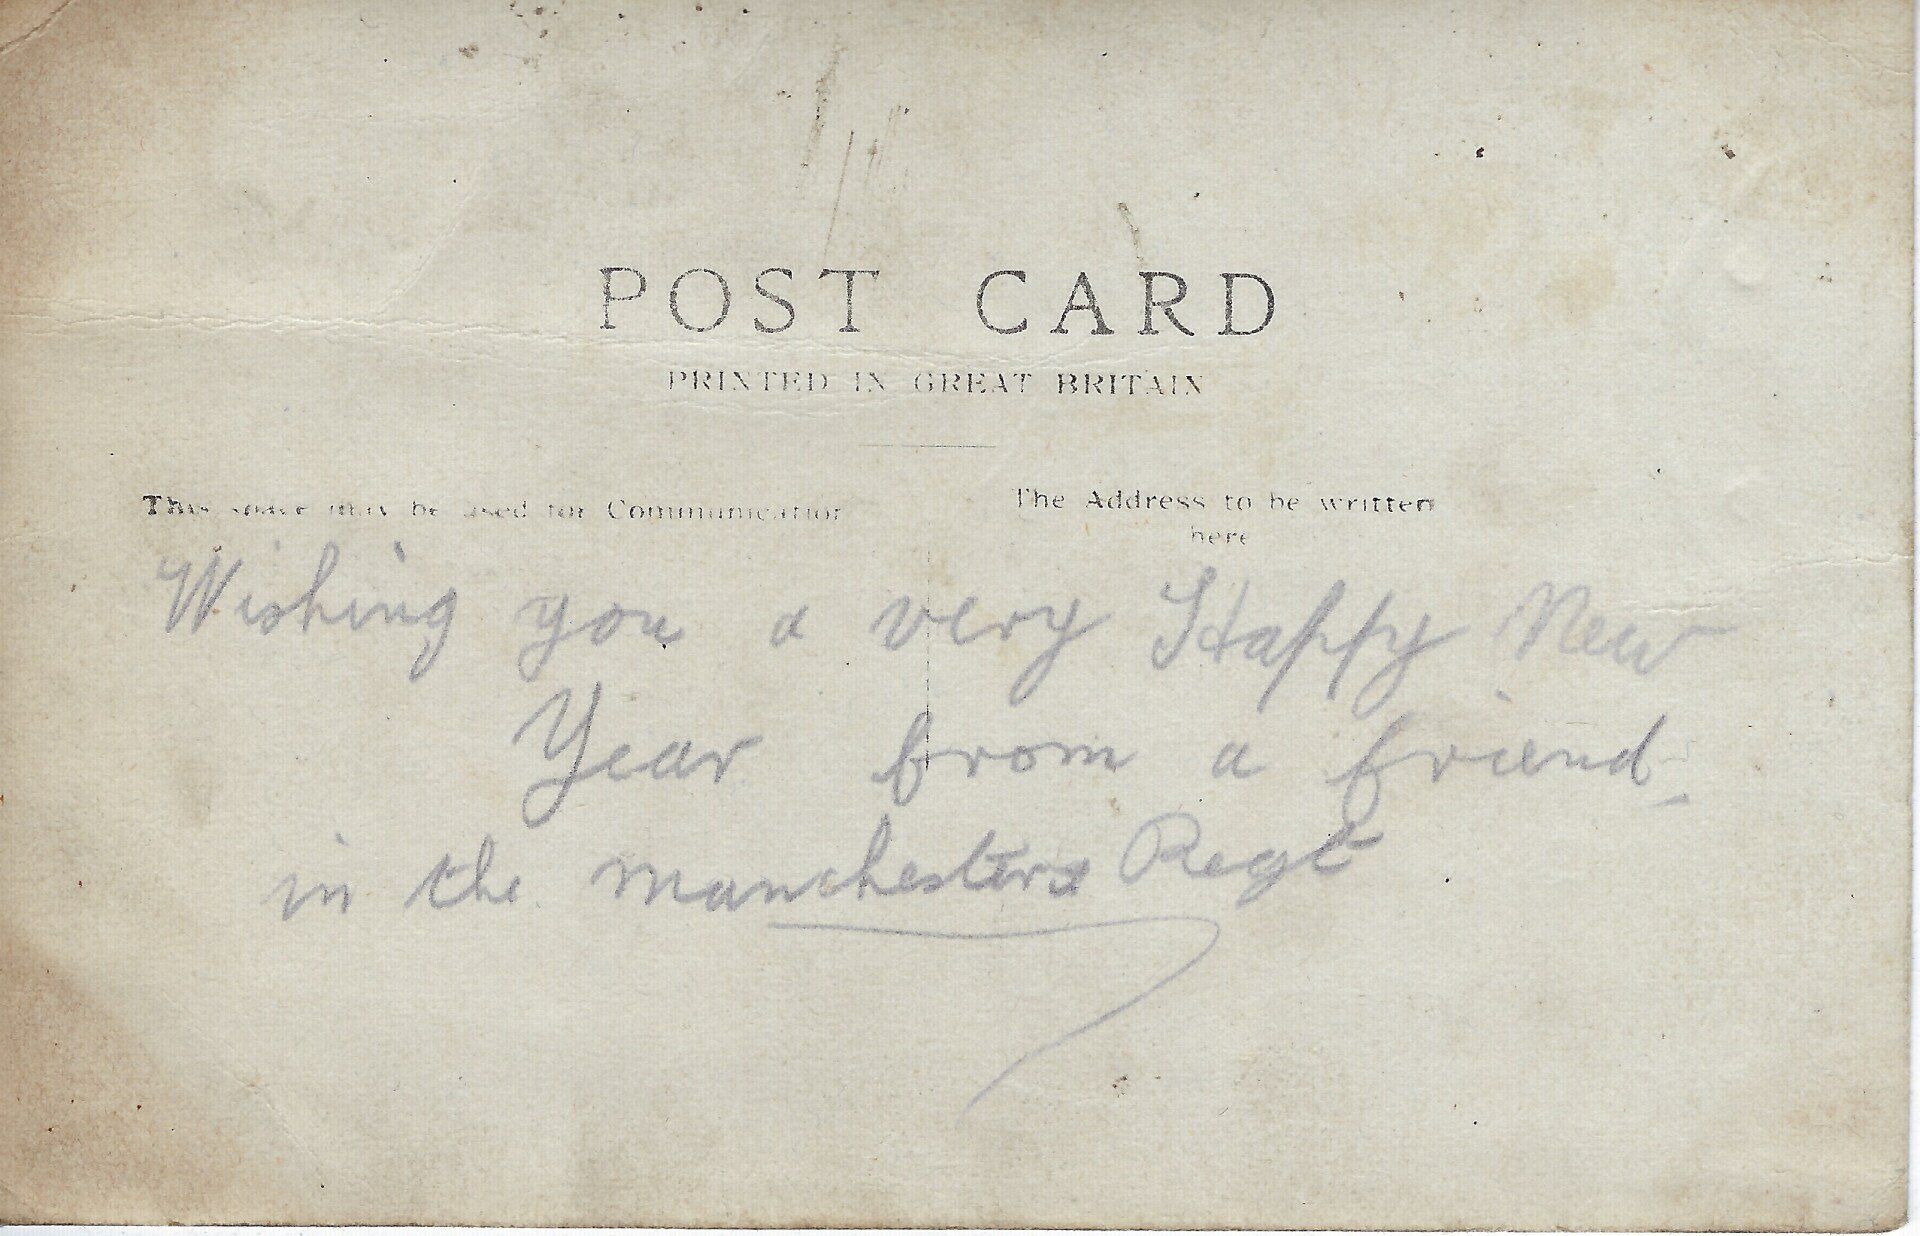 POST CARD
PRINTED IN GREAT BRITAIN
This space may be used for Communication
The Address to be written
here
Wishing you a very Happy New
Year from a friend
in the Manchesters Regt